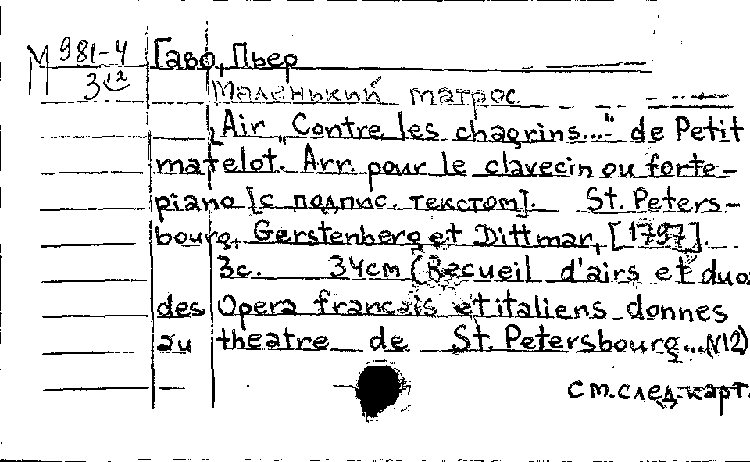 М 981-4
Гаво, Пьер
Маленький матрос
Air „Contre les chagrins...“ de Petit
matelot. Arr. pour le clavecin ou forte-
piano [с подпис. текстом]. St. Peters-
bourg, Gerstenberg et Dittmar, [1797].
3с. 34см (Recueil d'airs et duos
des Opera francais et italiens donnes
au theatre de St. Petersbourg... N12)
см. след. карт.